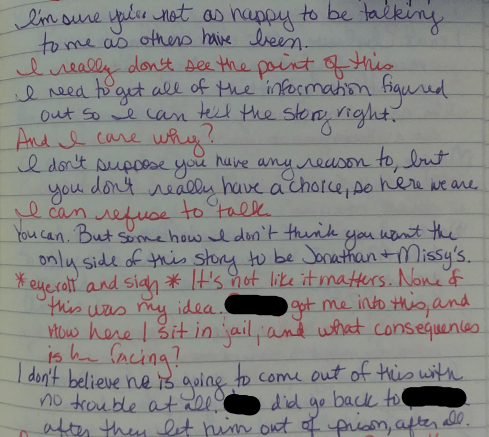 I'm sure you're not as happy to be talking
to me as others have been.
I really don't see the point of this
I need to get all of the information figured
out so I can tell the story right.
And I care why?
I don't suppose you have any reason to, but
you don't really have a choice, so here we are
I can refuse to talk
You can. But somehow I don't think you want the
only side of this story to be Jonathan + Missy's.
*eyeroll and sigh* It's not like it matters. None of
this was my idea. got me into this, and
now here I sit in jail, and what consequences
is he facing?
I don't believe he is going to come out of this with
no trouble at all. did go back to
after they let him out of prison, after all.